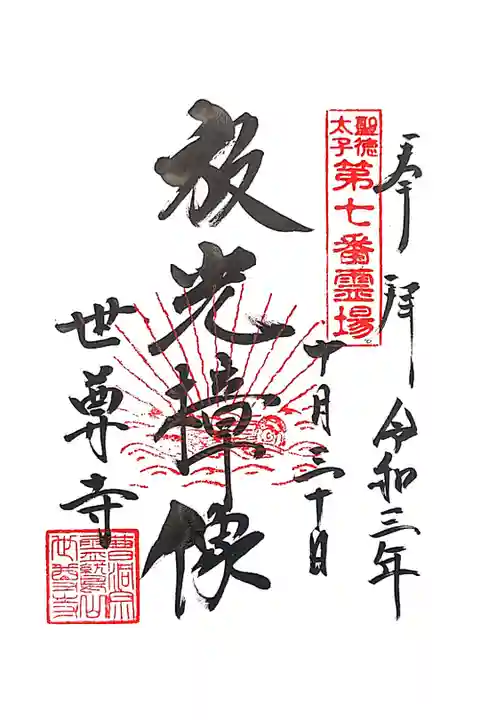 奉拝
令和三年
十月三十日
聖徳
太子
第七番霊場
放光樟像
世尊寺
曹洞宗
霊鷲山
世尊寺